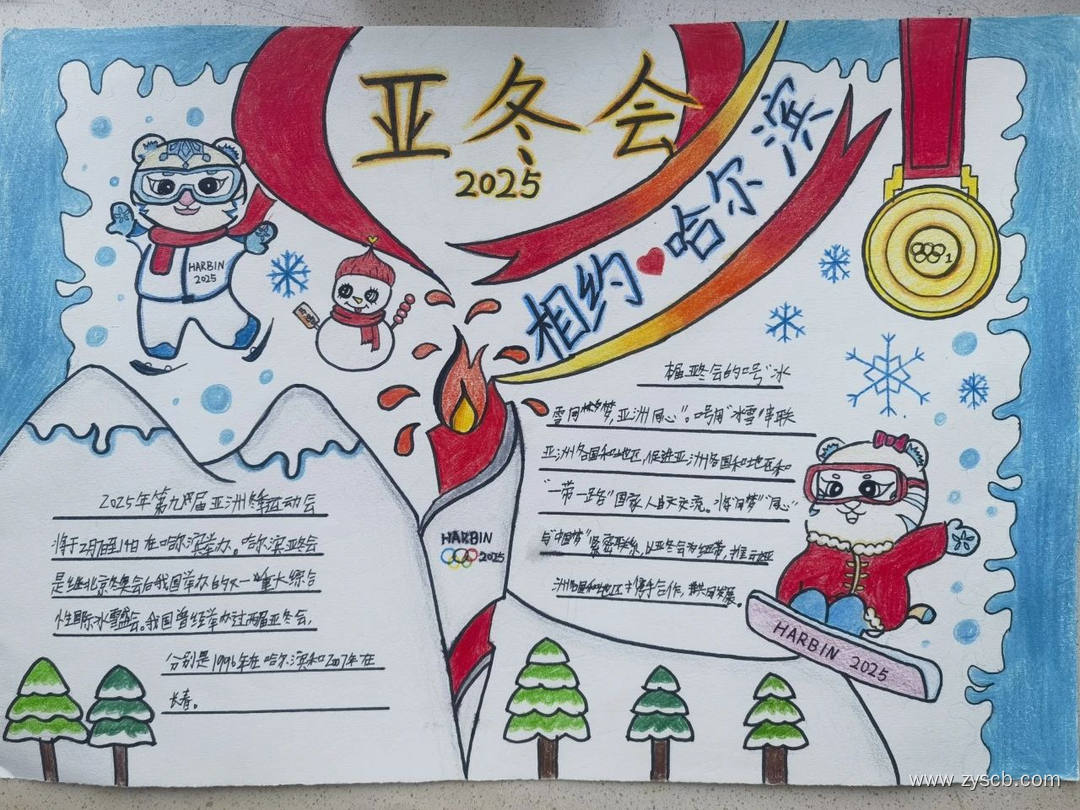 亚冬会
2025
相约哈尔滨
HARBIN
2025
1
本届亚冬会的口号"冰
雪同梦,亚洲同心"。口号用"冰雪"串联
亚洲各国和地区,促进亚洲各国和地区和
"一带一路"国家人民交流。将"同梦""同心"
与"中国梦"紧密联系,以亚冬会为纽带,推动亚
洲各国和地区携手合作,共同发展。
2025年第九届亚洲冬季运动会
将于2月7日至14日在哈尔滨举办。哈尔滨亚冬会
是继北京冬奥会后我国举办的又一重大综合
性国际冰雪盛会。我国曾经举办过两届亚冬会,
分别是1996年在哈尔滨和2007年在
长春。
HARBIN
2025
HARBIN 2025
www.zyscb.com